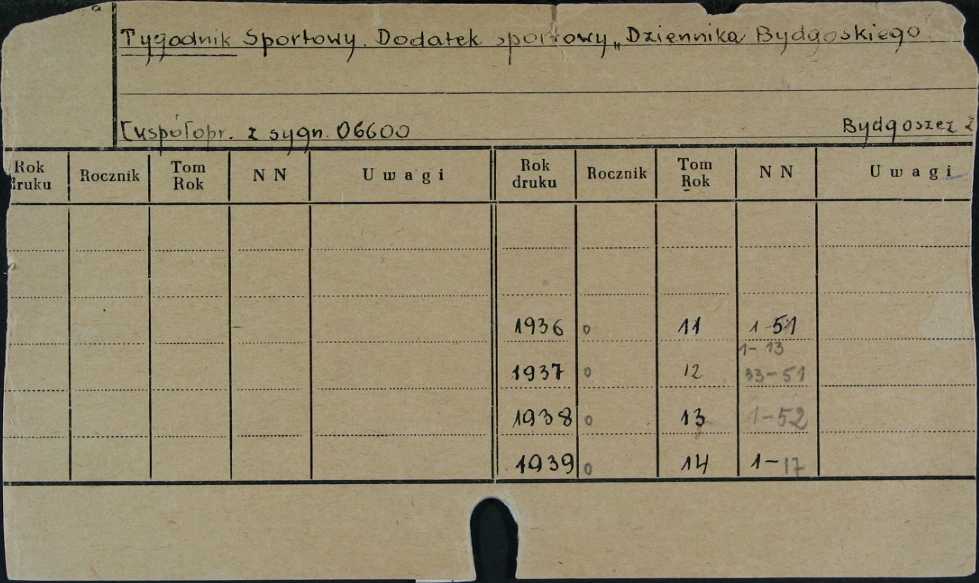 Tygodnik Sportowy. Dodatek sportowy „Dziennika Bydgoskiego
[współopr. z sygn. 06600 Bydgoszcz
Rok druku Rocznik Tom Rok N N Uwagi Rok druku Rocznik Tom Rok N N Uwagi
1936 o 11 1-51
1-13
1937 o 12 33-51
1938 o 13 1-52
1939 o 14 1-17